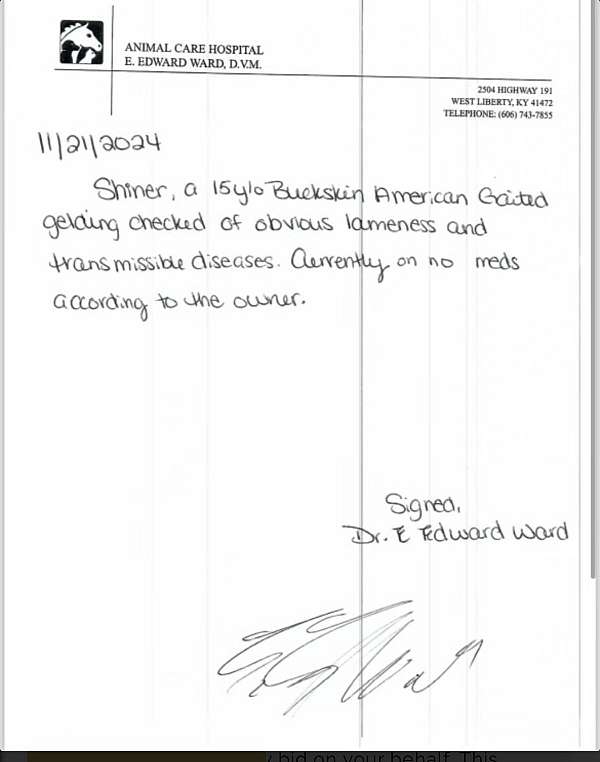 ANIMAL CARE HOSPITAL
E. EDWARD WARD, D.V.M.
2504 HIGHWAY 191
WEST LIBERTY, KY 41472
TELEPHONE: (606) 743-7855
11/21/2024
Shiner, a 15y/o Buckskin American Gaited
gelding checked of obvious lameness and
transmissible diseases. Currently on no meds
according to the owner.
Signed,
Dr. E Edward Ward
bid on your behalf. This